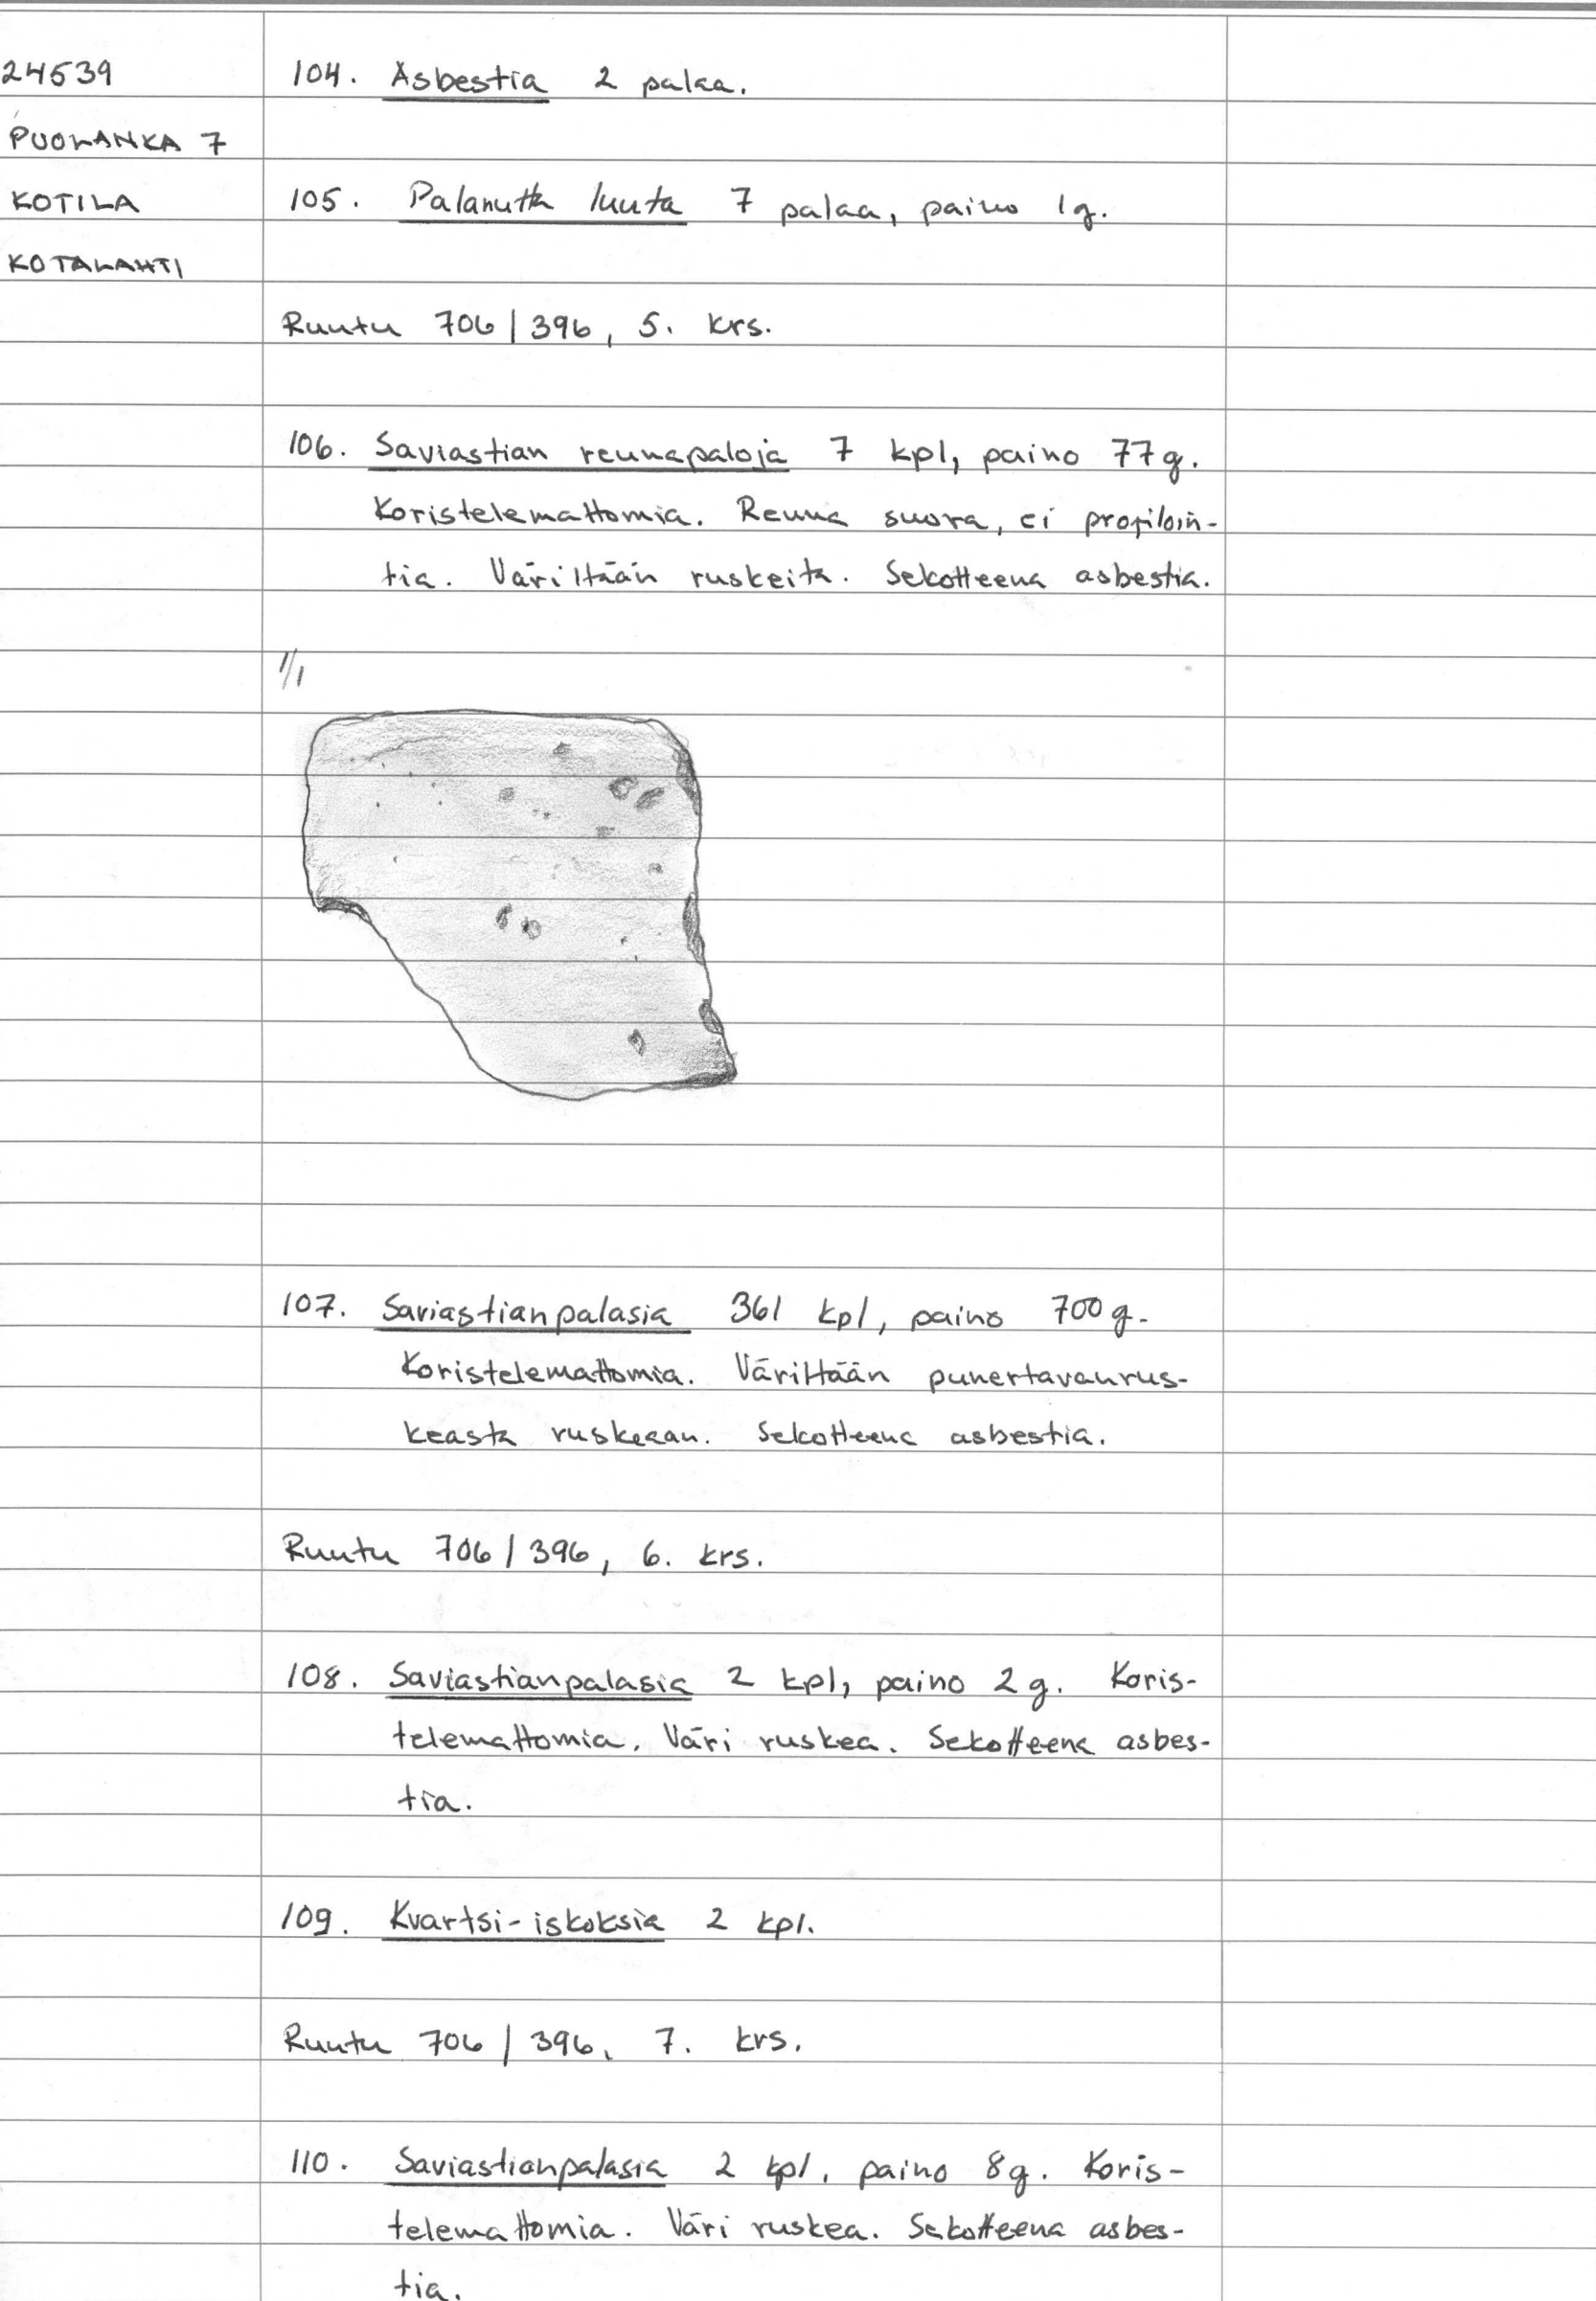 24539
PUOLANKA 7
KOTILA
KOTALAHTI
104. Asbestia 2 palaa.
105. Palanutta luuta 7 palaa, paino 1g.
Ruutu 706/396, 5. krs.
106. Saviastian reunapaloja 7 kpl, paino 77g.
Koristelemattomia. Reuna suora, ei profiloin-
tia. Väriltään ruskeita. Sekotteena asbestia.
1/1
107. Saviastianpalasia 361 kpl, paino 700g.
Koristelemattomia. Väriltään punertavanrus-
keasta ruskeaan. Sekotteena asbestia.
Ruutu 706/396, 6. krs.
108. Saviastianpalasia 2 kpl, paino 2g. Koris-
telemattomia. Väri ruskea. Sekotteena asbes-
tia.
109. Kvartsi-iskoksia 2 kpl.
Ruutu 706/396, 7. krs.
110. Saviastianpalasia 2 kpl, paino 8g. Koris-
telemattomia. Väri ruskea. Sekotteena asbes-
tia.